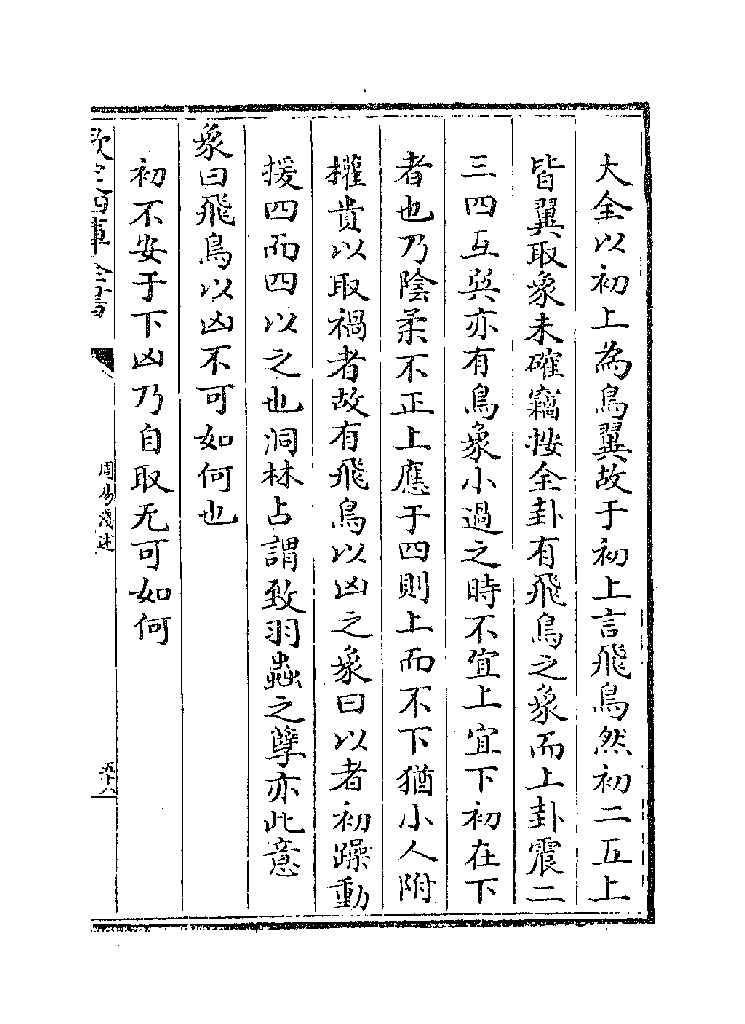 大全以初上為鳥翼故于初上言飛鳥然初二五上
皆翼取象未確竊按全卦有飛鳥之象而上卦震二
三四互巽亦有鳥象小過之時不宜上宜下初在下
者也乃陰柔不正上應于四則上而不下猶小人附
權貴以取禍者故有飛鳥以凶之象曰以者初躁動
援四而四以之也洞林占謂致羽蟲之孽亦此意
象曰飛鳥以凶不可如何也
初不安于下凶乃自取无可如何
欽定四庫全書
周易淺述
五十八